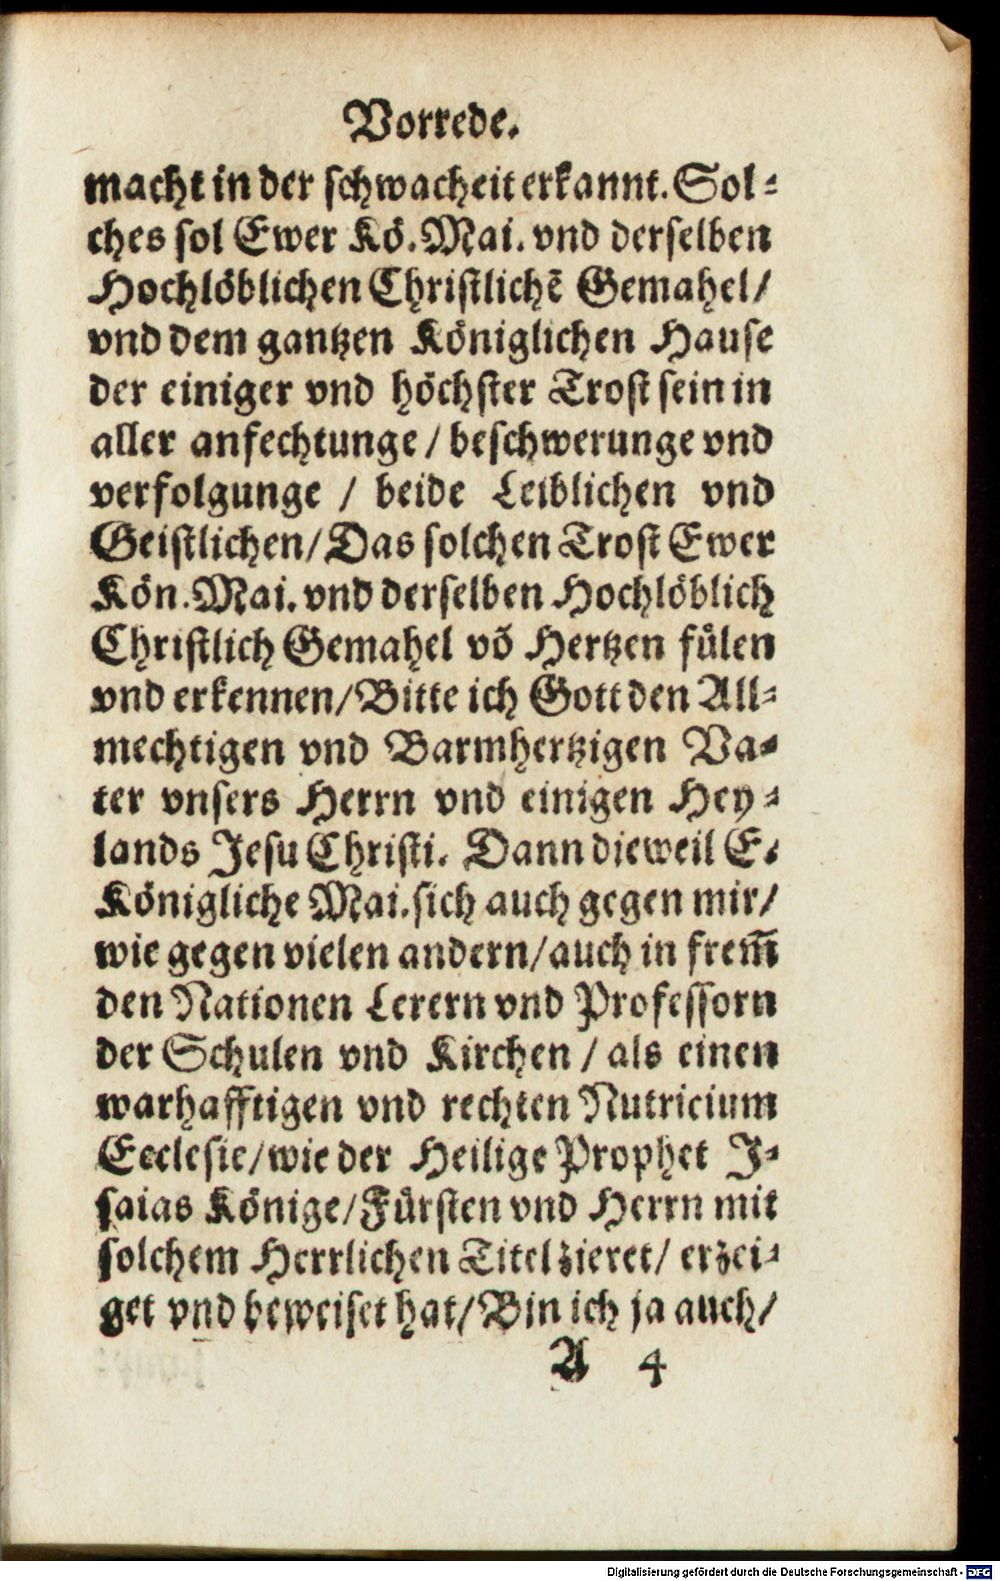 Vorrede.
macht in der schwacheit erkannt. Sol-
ches sol Ewer Kö. Mai. vnd derselben
Hochlöblichen Christlichē Gemahel/
vnd dem gantzen Königlichen Hause
der einiger vnd höchster Trost sein in
aller anfechtunge / beschwerunge vnd
verfolgunge / beide Leiblichen vnd
Geistlichen/ Das solchen Trost Ewer
Kön. Mai. vnd derselben Hochlöblich
Christlich Gemahel vō Hertzen fülen
vnd erkennen/ Bitte ich Gott den All-
mechtigen vnd Barmhertzigen Va-
ter vnsers Herrn vnd einigen Hey-
lands Jesu Christi. Dann dieweil E.
Königliche Mai. sich auch gegen mir/
wie gegen vielen andern/ auch in frem̄
den Nationen Lerern vnd Professorn
der Schulen vnd Kirchen / als einen
warhafftigen vnd rechten Nutricium
Ecclesie/ wie der Heilige Prophet J-
saias Könige/ Fürsten vnd Herrn mit
solchem Herrlichen Titel zieret/ erzei-
get vnd beweiset hat/ Bin ich ja auch/
A 4
Digitalisierung gefördert durch die Deutsche Forschungsgemeinschaft - DFG